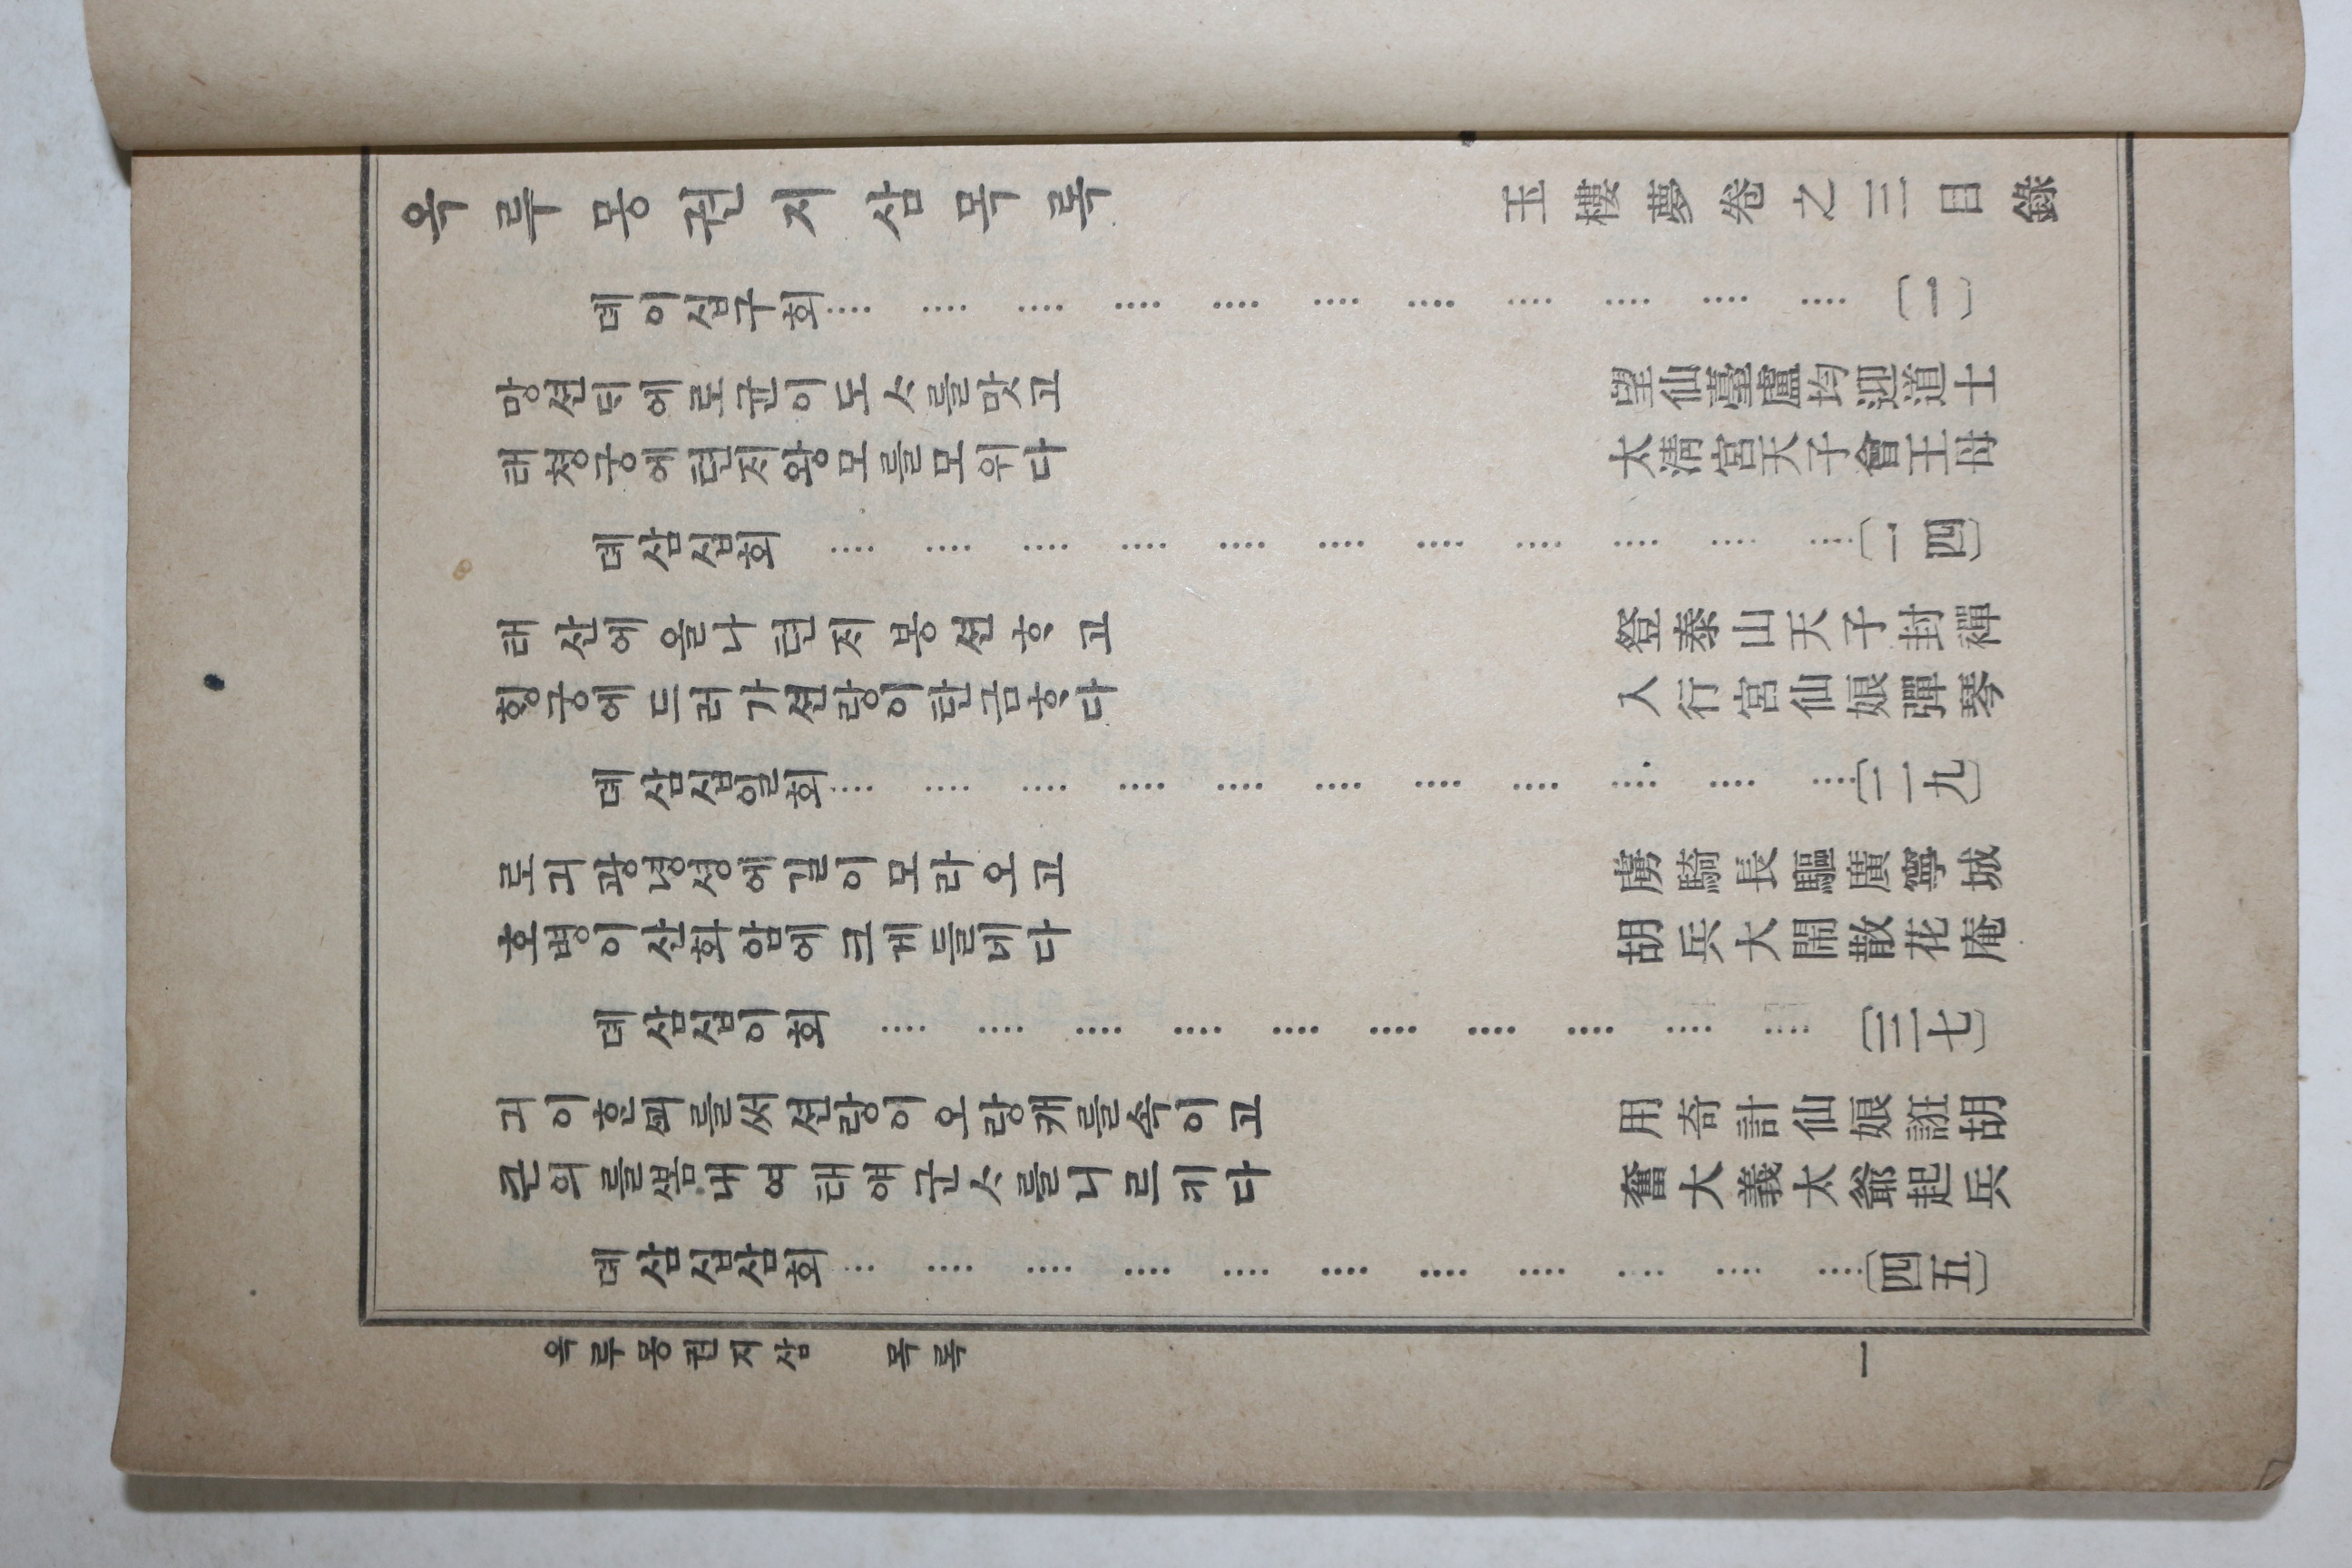 옥루몽권지삼목록 玉樓夢卷之三目錄
뎨이십구회 〔一〕
망션ᄃᆡ에로균이도ᄉᆞ를맛고 望仙臺盧均迎道士
태쳥궁에텬ᄌᆞ왕모를모위다 太淸宮天子會王母
뎨삼십회 〔一四〕
태산에올나텬ᄌᆞ봉션ᄒᆞ고 登泰山天子封禪
ᄒᆡᆼ궁에드러가션랑이탄금ᄒᆞ다 入行宮仙娘彈琴
뎨삼십일회 〔二九〕
로긔광녕셩에길이모라오고 虜騎長驅廣寧城
호병이산화암에크게들네다 胡兵大鬧散花庵
뎨삼십이회 〔三七〕
긔이한ᄭᅬ를써션랑이오랑캐를속이고 用奇計仙娘誑胡
큰의를ᄲᅩᆷ내여태얘군ᄉᆞ를니르키다 奮大義太爺起兵
뎨삼십삼회 〔四五〕
옥루몽권지삼 목록 一